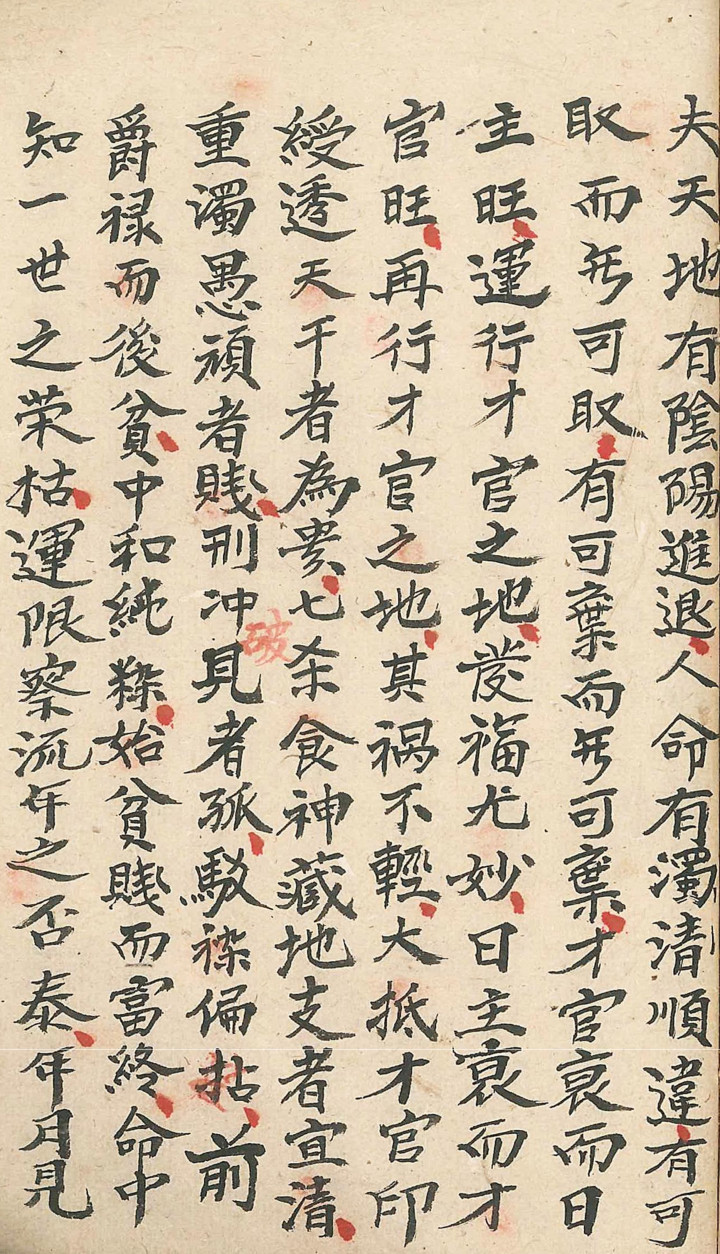 夫天地有陰陽進退人命有濁清順違有可
取而無可取有可棄而無可棄才官衰而日
主旺運行才官之地發福尤妙日主衰而才
官旺再行才官之地其禍不輕大抵才官印
綬透天干者為貴七杀食神藏地支者宜清
重濁愚頑者賤刑冲破見者孤駁襍偏拈前
爵禄而後貧中和純粹始貧賤而富終命中
知一世之荣枯運限察流年之否泰年月見